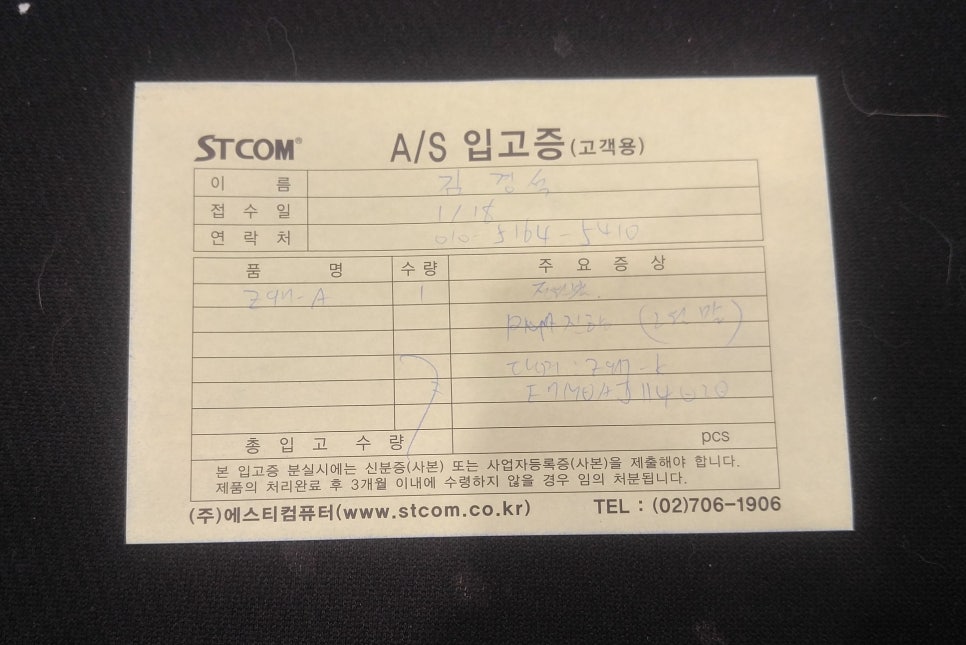 STCOM® A/S 입고증(고객용)
이 름 김 경석
접 수 일 1/18
연 락 처 010-5164-5410
품 명 수 량 주 요 증 상
Z97-A 1
(2월 말)
: Z97-K
총 입 고 수 량 pcs
본 입고증 분실시에는 신분증(사본) 또는 사업자등록증(사본)을 제출해야 합니다.
제품의 처리완료 후 3개월 이내에 수령하지 않을 경우 임의 처분됩니다.
(주)에스티컴퓨터(www.stcom.co.kr) TEL : (02)706-1906